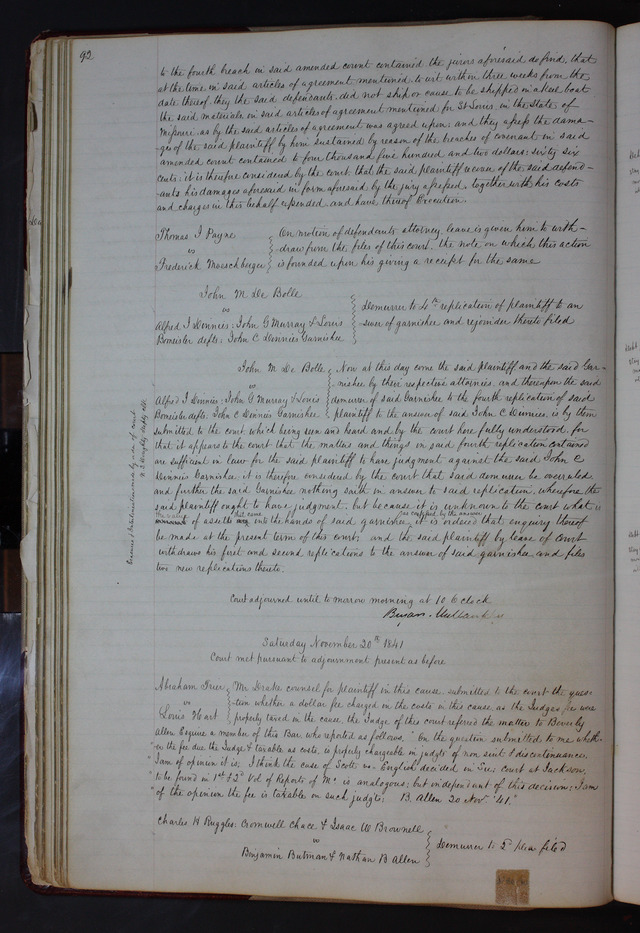 92
to the fourth breach in said amended count contained the jurors aforesaid do find, that
at the time in said articles of agreement mentioned to wit within three weeks from the
date thereof they the said defendants did not ship or cause to be shipped in a keel boat
the said materials in said articles of agreement mentioned for St Louis in the State of
Missouri as by the said articles of agreement was agreed upon: and they assess the dama-
ges of the said plaintiff by him sustained by reason of the breaches of covenant in said
amended count contained to four thousand five hundred and two dollars: sixty six
cents: it is therefore considered by the court that the said plaintiff recover of the said defend-
ants his damages aforesaid in form aforesaid by the jury assessed, together with his costs
and charges in this behalf expended and have thereof Execution.
Thomas J Payne
vs
Frederick Moeschberger
On motion of defendants attorney leave is given him to with-
draw from the files of this court, the note on which this action
is founded upon his giving a receipt for the same
John M De Bolle
vs
Alfred J Dennies: John G Murray & Louis
Bomeisler defts: John C Dennies Garnishee
Demurrer to 4th replication of plaintiff to an
swer of garnishee and rejoinder thereto filed
John M De Bolle
vs
Alfred J Dennies: John G Murray & Louis
Bomeisler defts. John C Dennies Garnishee
Now at this day come the said plaintiff and the said Gar-
nishee by their respective attornies, and thereupon the said
demurrer of said Garnishee to the fourth replication of said
plaintiff to the answer of said John C Dennies, is by them
submitted to the court which being seen and heard and by the court here fully understood, for
that it appears to the court that the matters and things in said fourth replication contained
are sufficient in law for the said plaintiff to have judgment against the said John C
Dennies Garnishee: it is therefore considered by the court that said demurrer be overruled
and further the said Garnishee nothing saith in answer to said replication, wherefore the
said plaintiff ought to have judgment, but because it is unknown to the court what is
the value that came as confessed by the answer
amount of assets into the hands of said garnishee, it is ordered that enquiry thereof
be made at the present term of this court: and the said plaintiff by leave of court
withdraws his first and second replications to the answer of said garnishee and files
two new replications thereto.
Court adjourned until to morrow morning at 10 O'clock
Saturday November 20th 1841
Court met pursuant to adjournment present as before
Abraham Frier
vs
Louis Hart
Mr Drake counsel for plaintiff in this cause submitted to the court the ques-
tion whether a dollar fee charged in the costs in this cause, as the Judges fee were
properly taxed in the cause, the Judge of this court referred the matter to Beverly
Allen Esquire a member of this Bar, who reported as follows. "On the question submitted to me wheth-
"er the fee due the Judge & taxable as costs, is properly chargeable in judgts of non suit & discontinuances,
"I am of opinion it is. I think the case of Scott vs English decided in Sup: Court at Jackson,
"to be found in 1st & 2d Vol of Reports of Mo is analogous; but independent of this decision; I am
"of the opinion the fee is taxable on such judgts; B. Allen 20 Nov "41"
Charles H Ruggles: Cromwell Chace & Isaac W Brownell
vs
Benjamin Butman & Nathan B Allen
Demurrer to 2d plea filed